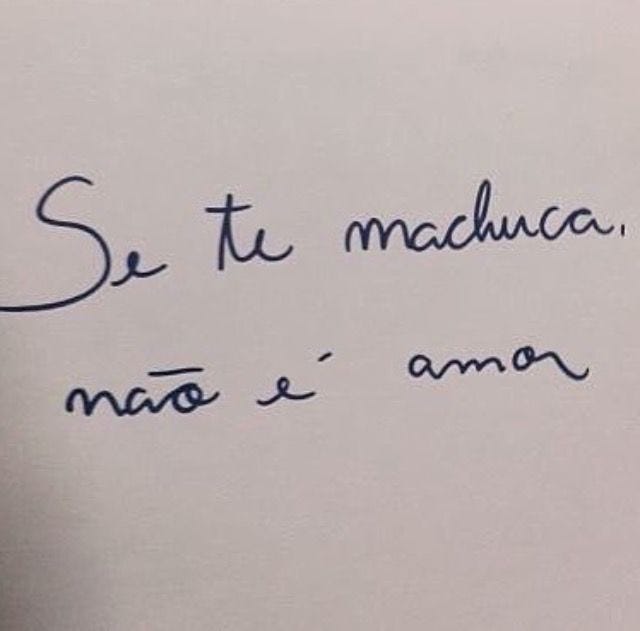 Se te machuca,
não é amor